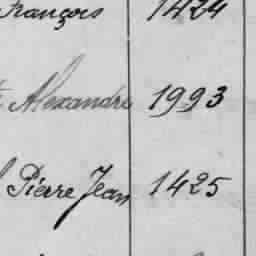 François 1424
Alexandre 1993
Pierre Jean 1425